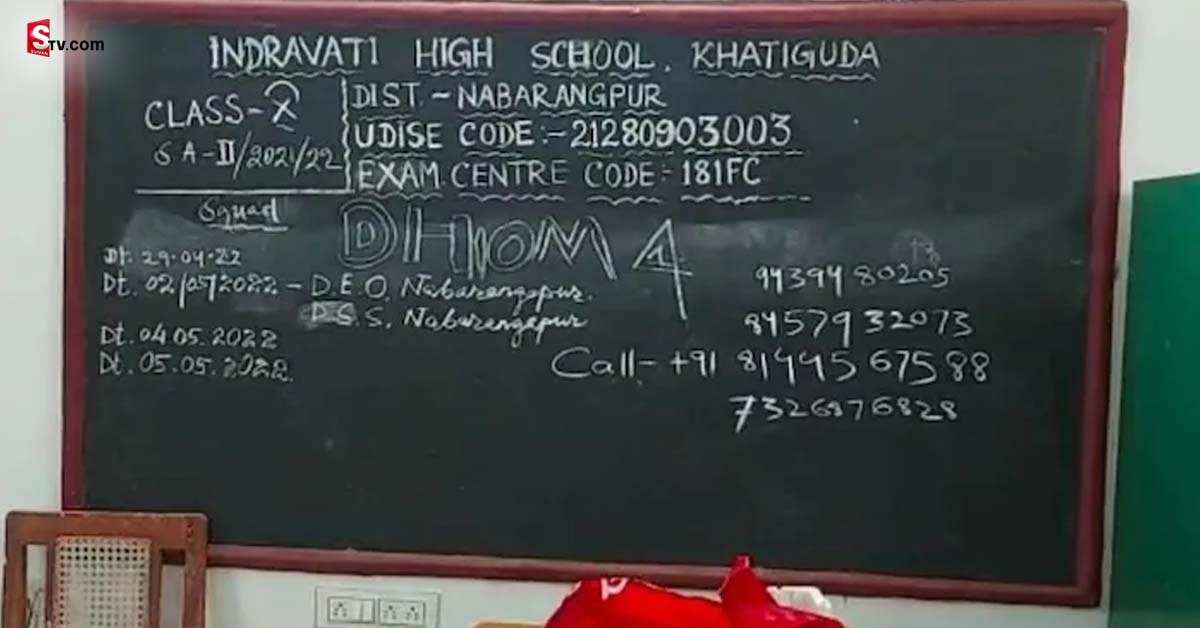 STV.com
SUMAN
INDRAVATI HIGH SCHOOL. KHATIGUDA
CLASS-X
SA-II/2021/22
DIST.~NABARANGPUR
UDISE CODE:-21280903003
EXAM.CENTRE CODE:-181FC
Squad
DHOOM 4
Dt. 29.04.22
Dt. 02/05/2022 - D.E.O. Nabarangapur.
D.S.S. Nabarangapur
Dt. 04.05.2022
Dt. 05.05.2022.
9439480205
8457932073
Call- +91 8144567588
7326876828